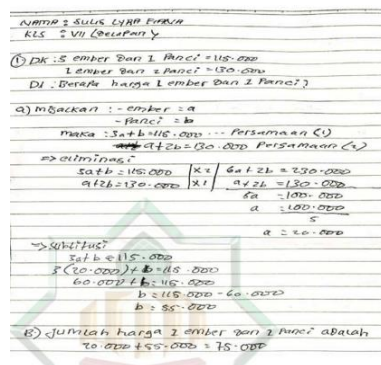 NAMA : SULIS LYRA FIRNA
KLS : VII (Delapan)
① DK : 3 ember Dan 1 Panci = 115.000
1 ember Dan 2 Panci = 130.000
DI : Berapa harga 1 ember Dan 1 Panci?
a) misalkan : - ember : a
- Panci : b
maka : 3a+b = 115.000 ... Persamaan (1)
a+2b = 130.000 Persamaan (2)
=> eliminasi
3a+b = 115.000 | x2 | 6a+2b = 230.000
a+2b = 130.000 | x1 | a+2b = 130.000
5a = 100.000
a = 100.000
5
a = 20.000
=> subtitusi
3a+b = 115.000
3(20.000)+b = 115.000
60.000+b = 115.000
b = 115.000 - 60.000
b = 55.000
B) Jumlah harga 1 ember Dan 1 Panci aDalah
20.000 + 55.000 = 75.000